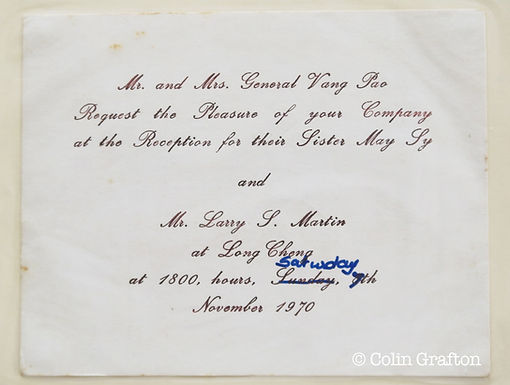 Mr. and Mrs. General Vang Pao
Request the Pleasure of your Company
at the Reception for their Sister May Sy
and
Mr. Larry S. Martin
at Long Cheng
Saturday
at 1800, hours, Sunday, 7th
November 1970
© Colin Grafton